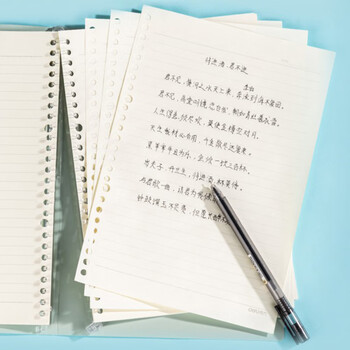 将进酒·君不见
李白
君不见,黄河之水天上来,奔流到海不复回。
君不见,高堂明镜悲白发,朝如青丝暮成雪。
人生得意须尽欢,莫使金樽空对月。
天生我材必有用,千金散尽还复来。
烹羊宰牛且为乐,会须一饮三百杯。
岑夫子,丹丘生,将进酒,杯莫停。
与君歌一曲,请君为我倾
钟鼓馔玉不足贵,但愿长